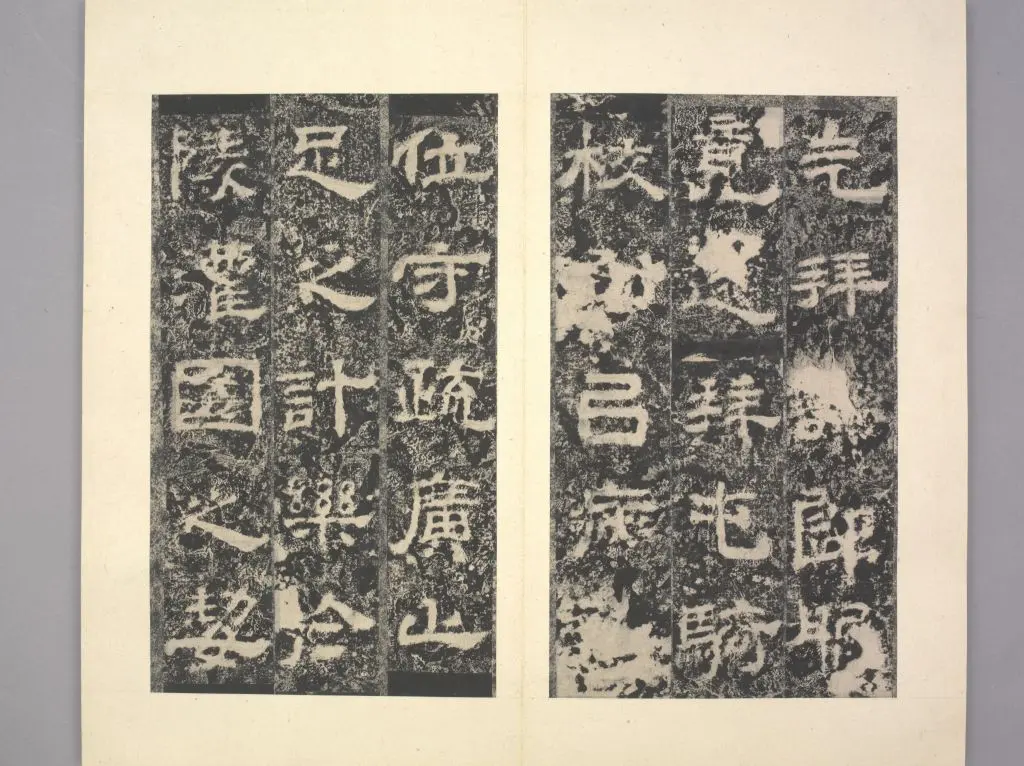 先拜郎服
竟還拜屯騎
校尉㠯病
位守疏廣止
足之計樂於
陵灌園之契